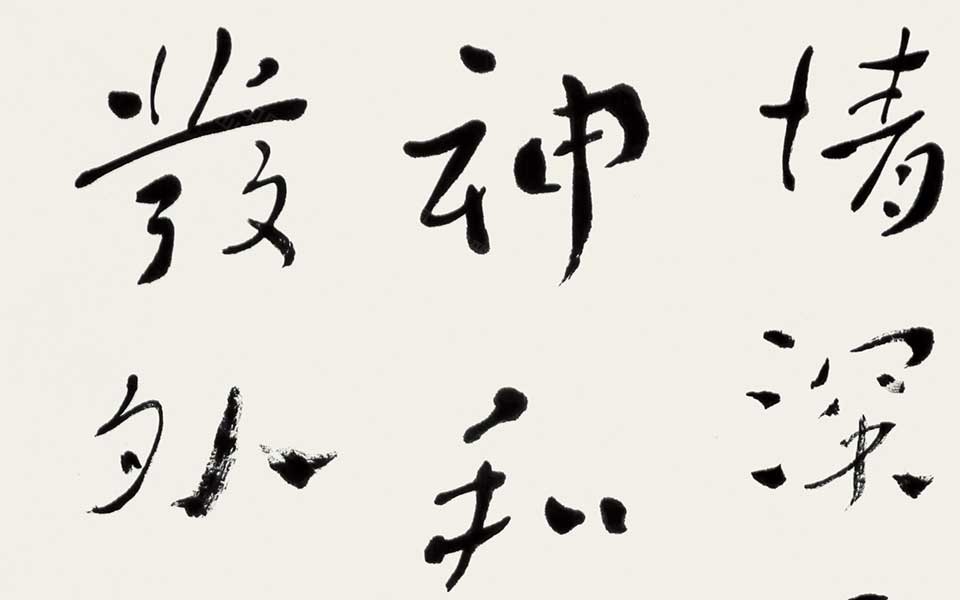 情深
神和
發外